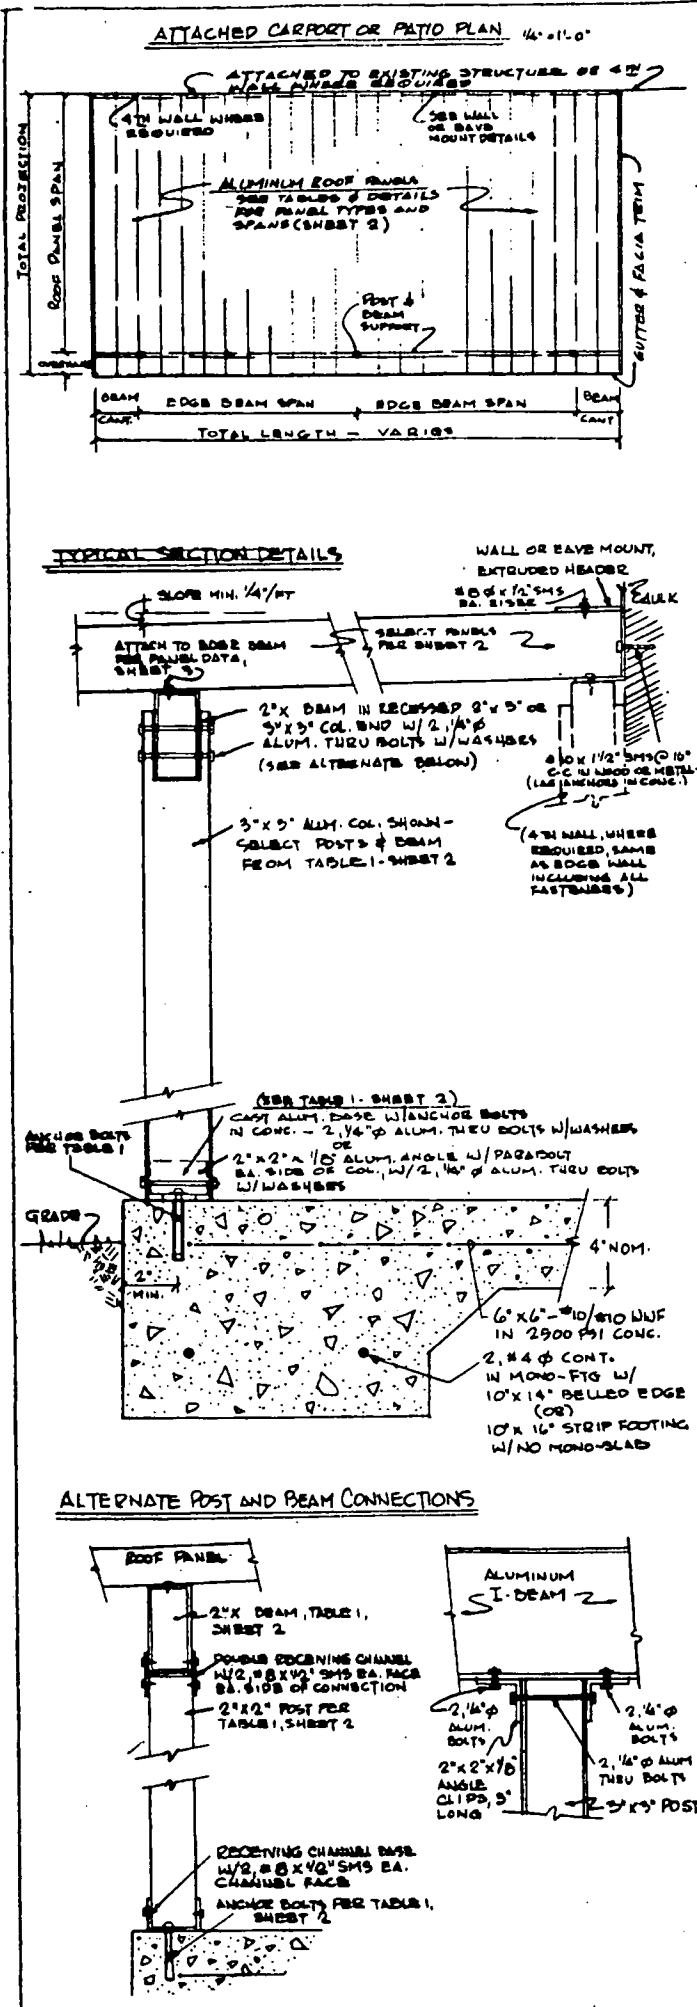 ATTACHED CARPORT OR PATIO PLAN 1/4"=1'-0"
ATTACHED TO EXISTING STRUCTURE OR 4TH
WALL WHERE REQUIRED
4TH WALL WHERE
REQUIRED
SEE WALL
OR EAVE
MOUNT DETAILS
TOTAL PROJECTION
ROOF PANEL SPAN
ALUMINUM ROOF PANELS
SEE TABLES & DETAILS
FOR PANEL TYPES AND
SPANS (SHEET 2)
POST &
BEAM
SUPPORT
GUTTER & FACIA TRIM
OVERHANG
BEAM
CANT.
EDGE BEAM SPAN
EDGE BEAM SPAN
BEAM
CANT
TOTAL LENGTH - VARIES
TYPICAL SECTION DETAILS
WALL OR EAVE MOUNT,
EXTRUDED HEADER
#8 Ø x 1/2" SMS
EA. RISER
CAULK
SLOPE MIN. 1/4"/FT
ATTACH TO EDGE BEAM
PER PANEL DATA,
SHEET
SELECT PANELS
PER SHEET 2
2"X BEAM IN RECESSED 2"x 3" OR
3"x 3" COL. END W/ 2, 1/4" Ø
ALUM. THRU BOLTS W/WASHERS
(SEE ALTERNATE BELOW)
x 1 1/2" SMS @ 16"
C-C IN WOOD OR METAL
(LAG ANCHORS IN CONC.)
3"x 3" ALUM. COL. SHOWN-
SELECT POSTS & BEAM
FROM TABLE 1 - SHEET 2
(4TH WALL, WHERE
REQUIRED, SAME
AS EDGE WALL
INCLUDING ALL
FASTENERS)
(SEE TABLE 1 - SHEET 2)
CAST ALUM. BASE W/ANCHOR BOLTS
IN CONC. - 2, 1/4" Ø ALUM. THRU BOLTS W/WASHERS
OR
2"x 2"x 1/8" ALUM. ANGLE W/PARABOLT
EA. SIDE OF COL., W/2, 1/4" Ø ALUM. THRU BOLTS
W/WASHERS
ANCHOR BOLTS
PER TABLE 1
GRADE
2"
MIN.
4" NOM.
6"x 6" - #10/#10 WWF
IN 2500 PSI CONC.
2, #4 Ø CONT.
IN MONO-FTG W/
10"x 14" BELLED EDGE
(OR)
10"x 16" STRIP FOOTING
W/NO MONO-SLAB
ALTERNATE POST AND BEAM CONNECTIONS
ROOF PANEL
2"X BEAM, TABLE 1,
SHEET 2
DOUBLE RECEIVING CHANNEL
W/2, #8 x 1/2" SMS EA. FACE
EA. SIDE OF CONNECTION
2"x 2" POST PER
TABLE 1, SHEET 2
RECEIVING CHANNEL BASE
W/2, #8 x 1/2" SMS EA.
CHANNEL FACE
ANCHOR BOLTS PER TABLE 1,
SHEET 2
ALUMINUM
I-BEAM
2, 1/4" Ø
ALUM.
BOLTS
2, 1/4" Ø
ALUM.
BOLTS
2"x 2"x 1/8"
ANGLE
CLIPS, 3"
LONG
2, 1/4" Ø ALUM
THRU BOLTS
3"x 3" POST